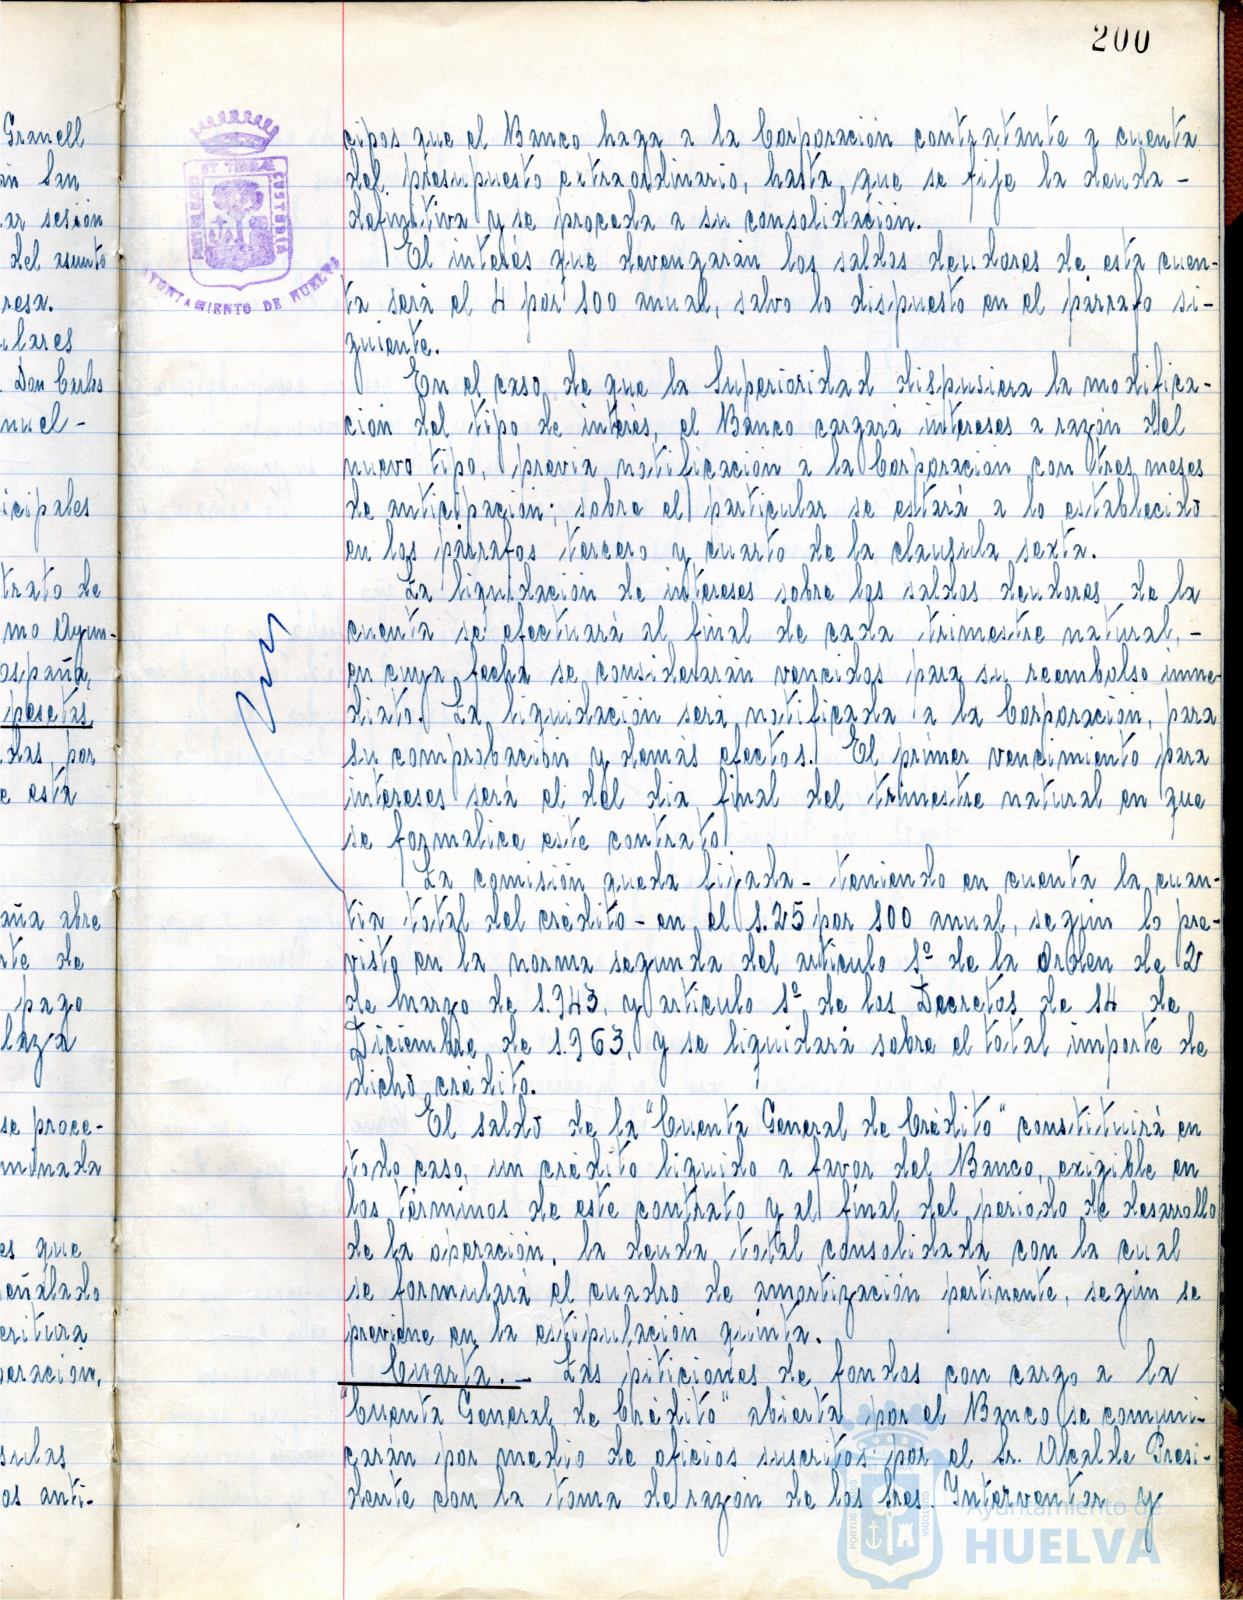 200
Granell
San
ar sesión
del asunto
resa.
lares
Don Carlos
nuel -
icipales
trato de
mo Ayun-
España,
pesetas
das, por
e esta
aña abre
rte de
pago
laza
se proce-
minada
es que
eñalado
critura
peración,
sulas
os anti-
PORTUS MARIS ET TERRAE CUSTODIA
AYUNTAMIENTO DE HUELVA
cipos que el Banco haga a la Corporación contratante a cuenta
del presupuesto extraordinario, hasta que se fije la deuda -
definitiva y se proceda a su consolidación.
El interés que devengarán los saldos deudores de esta cuen-
ta será el 4 por 100 anual, salvo lo dispuesto en el párrafo si-
guiente.
En el caso de que la Superioridad dispusiera la modifica-
ción del tipo de interés, el Banco cargará intereses a razón del
nuevo tipo, previa notificación a la Corporación con tres meses
de anticipación; sobre el particular se estará a lo establecido
en los párrafos tercero y cuarto de la clausula sexta.
La liquidación de intereses sobre los saldos deudores de la
cuenta se efectuará al final de cada trimestre natural, -
en cuya fecha se considerarán vencidos para su reembolso inme-
diato. La liquidación será notificada a la Corporación, para
su comprobación y demás efectos. El primer vencimiento para
intereses será el del dia final del trimestre natural en que
se formalice este contrato.
La comisión queda fijada - teniendo en cuenta la cuan-
tia total del crédito - en el 1.25 por 100 anual, según lo pre-
visto en la norma segunda del articulo 1º de la Orden de 2
de Marzo de 1.943, y articulo 1º de los Decretos de 14 de
Diciembre de 1.963, y se liquidará sobre el total importe de
dicho crédito.
El saldo de la "Cuenta General de Crédito" constituirá en
todo caso, un crédito liquido a favor del Banco, exigible en
los términos de este contrato y al final del periodo de desarrollo
de la operación, la deuda total consolidada con la cual
se formulará el cuadro de amortización pertinente, según se
previene en la estipulación quinta.
Cuarta. - Las piticiones de fondos con cargo a la
"Cuenta General de Crédito" abierta por el Banco se comuni-
carán por medio de oficios suscritos por el Sr. Alcalde Presi-
dente con la toma de razón de los Sres. Interventor y
Ayuntamiento de
HUELVA